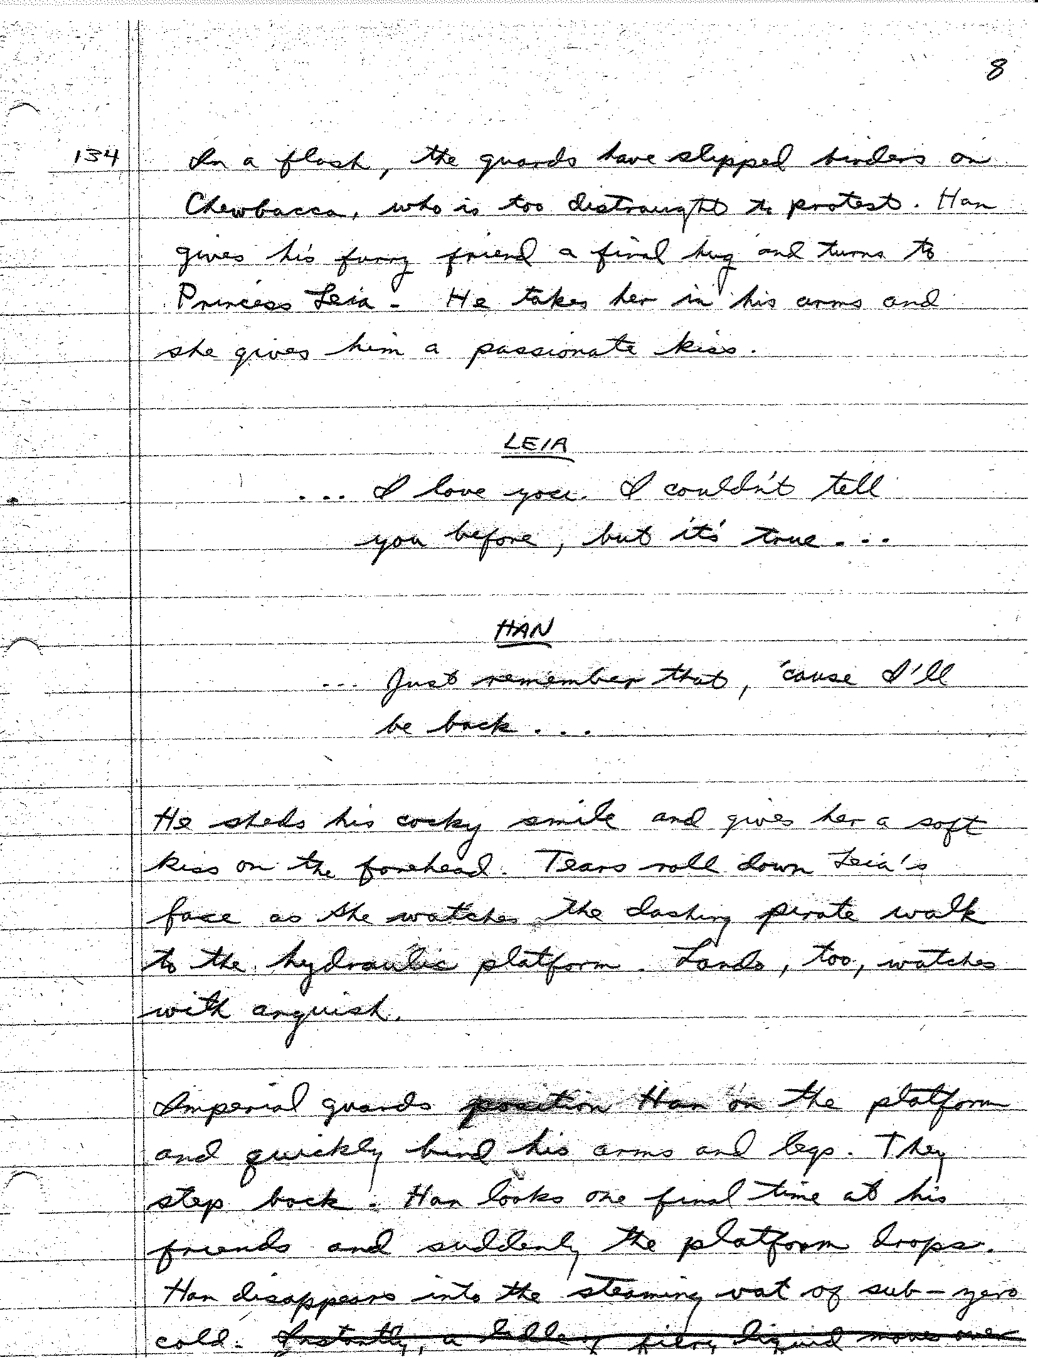 8
134 In a flash, the guards have slipped binders on
Chewbacca, who is too distraught to protest. Han
gives his furry friend a final hug and turns to
Princess Leia - He takes her in his arms and
she gives him a passionate kiss.
LEIA
... I love you. I couldn't tell
you before, but it's true...
HAN
... Just remember that, 'cause I'll
be back...
He sheds his cocky smile and gives her a soft
kiss on the forehead. Tears roll down Leia's
face as she watches the dashing pirate walk
to the hydraulic platform. Lando, too, watches
with anguish.
Imperial guards position Han on the platform
and quickly bind his arms and legs. They
step back. Han looks one final time at his
friends and suddenly the platform drops.
Han disappears into the steaming vat of sub-zero
cold. Instantly, a ladle of fiery liquid moves over